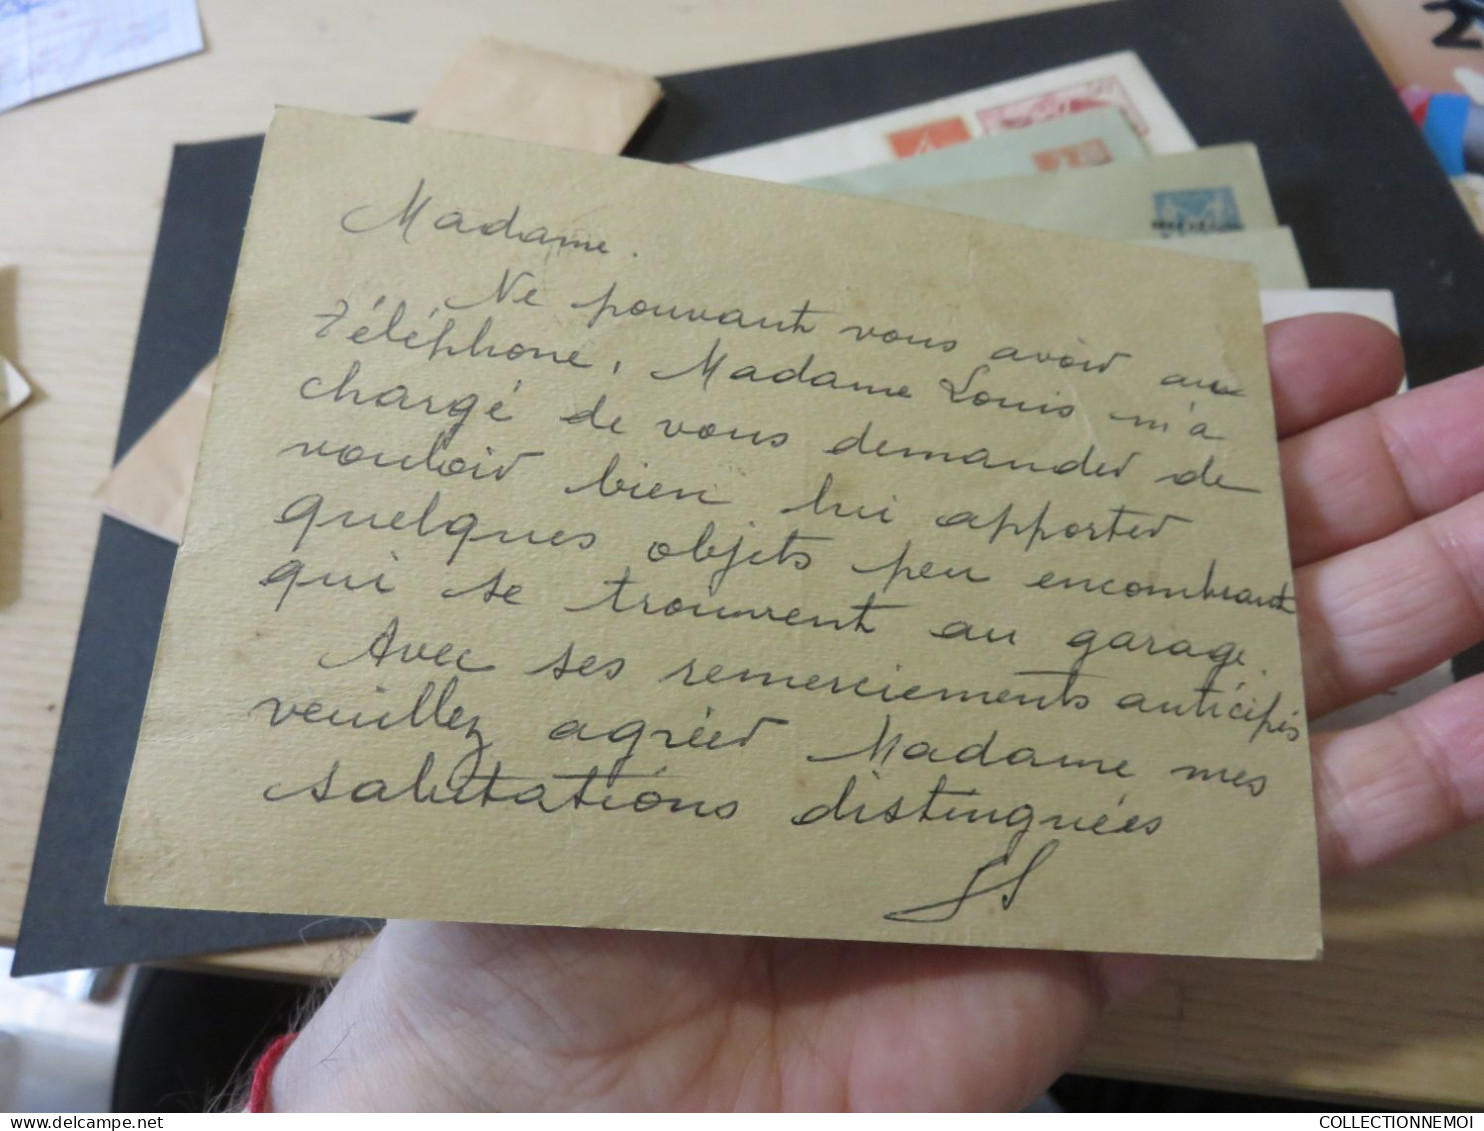 Madame.
Ne pouvant vous avoir au
téléphone, Madame Louis m'a
chargé de vous demander de
vouloir bien lui apporter
quelques objets peu encombrant
qui se trouvent au garage.
Avec ses remerciements anticipés
veuillez agréer Madame mes
salutations distinguées
COLLECTIONNEMOI